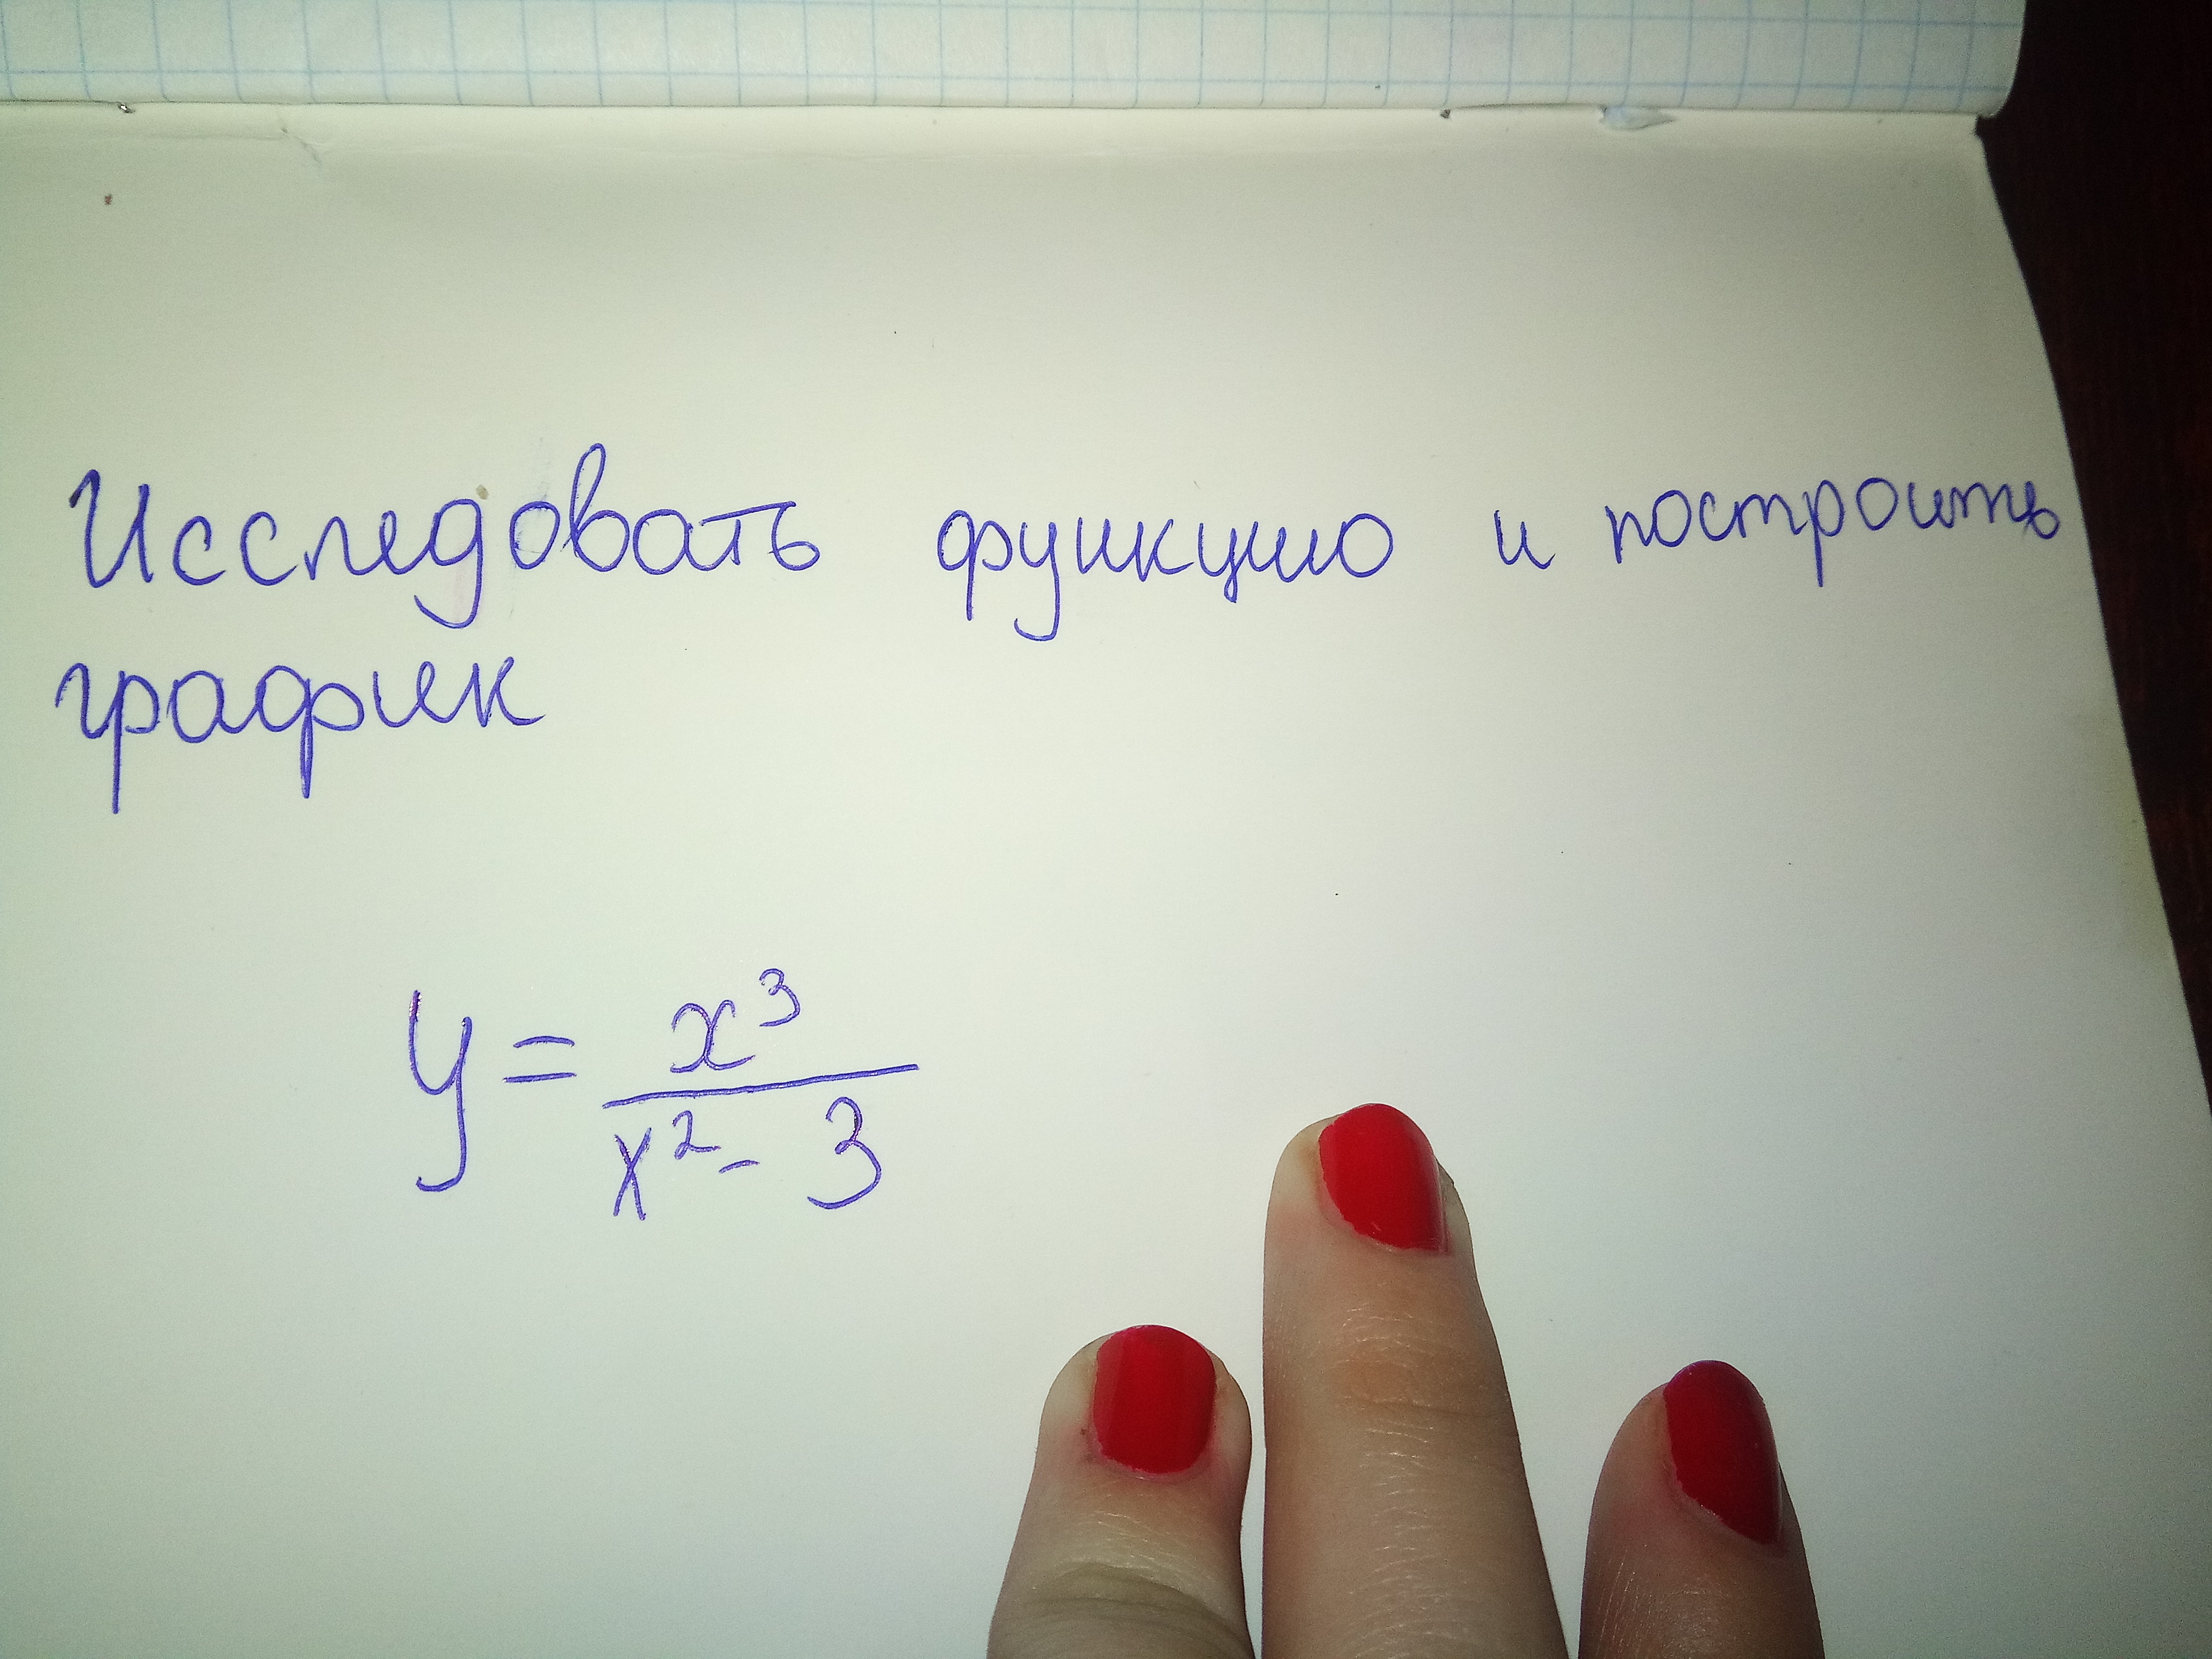 Исследовать функцию и построить
график
y = x³ / x² - 3